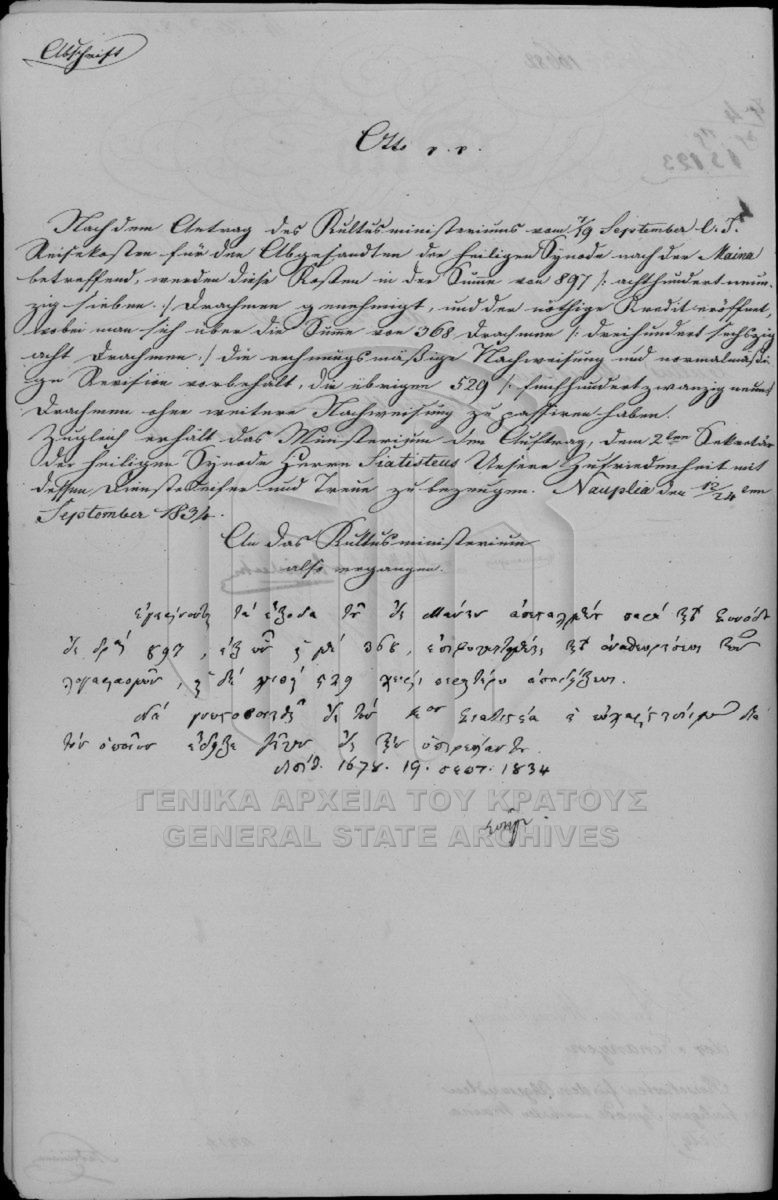 Abschrift
Otto p. p.
Nach dem Antrag des Kultusministeriums vom 7/9 September l. J.
Reisekosten für den Abgesandten der heiligen Synode nach der Maina
betreffend, werden diese Kosten in der Summe von 897 /: achthundert neun-
zig sieben :/ Drachmen genehmigt, und der nöthige Kredit eröffnet,
wobei man sich über die Summe von 368 Drachmen /: dreihundert sechszig
acht Drachmen :/ die rechnungsmäßige Nachweisung und normalmäßi-
ge Revision vorbehält, die übrigen 529 /: fünfhundert zwanzig neun :/
Drachmen ohne weitere Nachweisung zu passiren haben.
Zugleich erhält das Ministerium den Auftrag, dem 2ten Sekretär
der heiligen Synode Herrn Siatisteus Unsere Zufriedenheit mit
dessen Diensteseifer und Treue zu bezeugen. Nauplia den 12/24 ten
September 1834.
An das Kultusministerium
also ergangen.
τὰ ἔξοδα τοῦ εἰς Μάνην παρὰ τῆς Συνόδου
εἰς δρχ 897, ἐξ ὧν 368, τῶν
λογαριασμῶν, 529 χωρὶς περαιτέρω
Νὰ εἰς τὸν Σιατιστέα ἡ διὰ
τὸν ὁποῖον ἔδειξε ζῆλον εἰς τὴν
ἀριθ. 1678. 19. σεπτ. 1834
ΓΕΝΙΚΑ ΑΡΧΕΙΑ ΤΟΥ ΚΡΑΤΟΥΣ
GENERAL STATE ARCHIVES